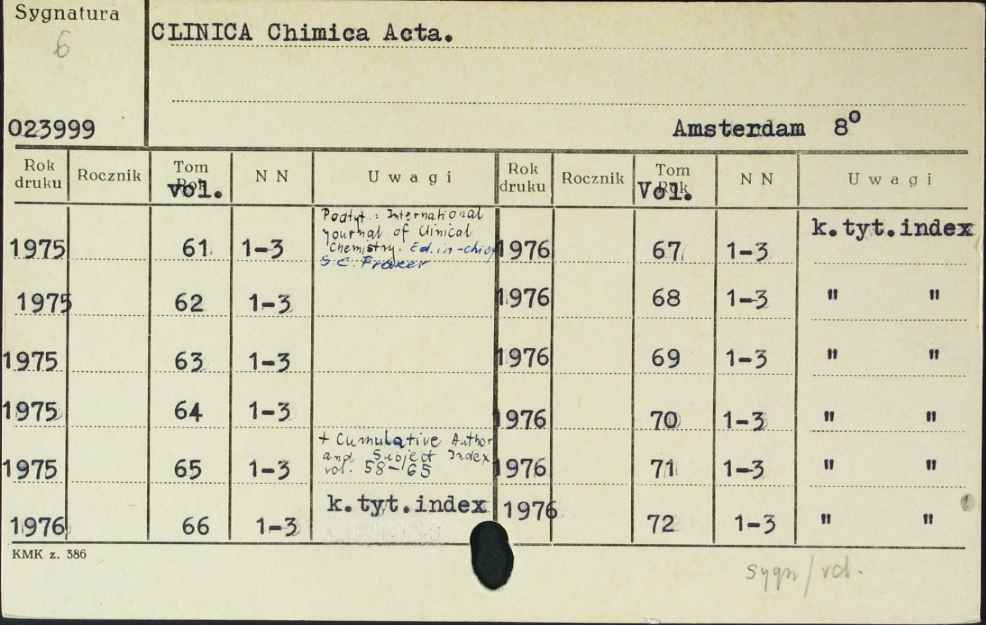 Sygnatura
6
CLINICA Chimica Acta.
023999
Amsterdam 8°
Rok druku Rocznik Tom Rok vol. N N Uwagi Rok druku Rocznik Tom Rok Vol. N N Uwagi
1975 61 1-3 Podtyt.: International Journal of Clinical Chemistry. Ed. in-chief S.C. Frazer 1976 67 1-3 k.tyt.index
1975 62 1-3 1976 68 1-3 " "
1975 63 1-3 1976 69 1-3 " "
1975 64 1-3 1976 70 1-3 " "
1975 65 1-3 + Cumulative Author and Subject Index vol. 58-65 1976 71 1-3 " "
1976 66 1-3 k.tyt.index 1976 72 1-3 " "
KMK z. 386
sygn/vol.